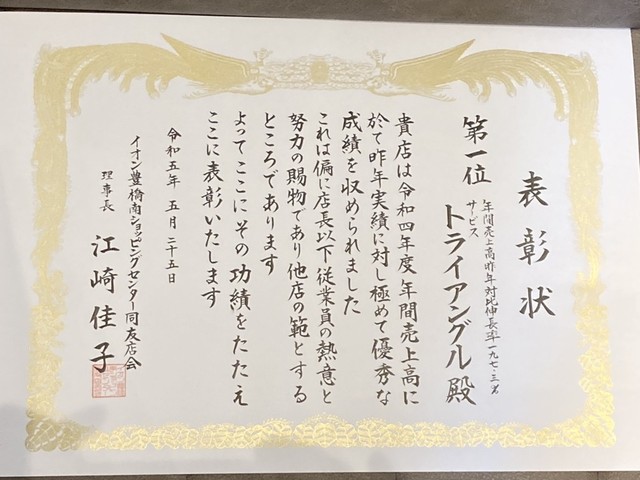 表彰状
年間売上高昨年対比伸長率一九七・三%
第一位 サービス トライアングル殿
貴店は令和四年度年間売上高に
於て昨年実績に対し極めて優秀な
成績を収められました
これは偏に店長以下従業員の熱意と
努力の賜物であり他店の範とする
ところであります
よってここにその功績をたたえ
ここに表彰いたします
令和五年 五月 二十五日
イオン豊橋南ショッピングセンター同友店会
理事長 江崎佳子